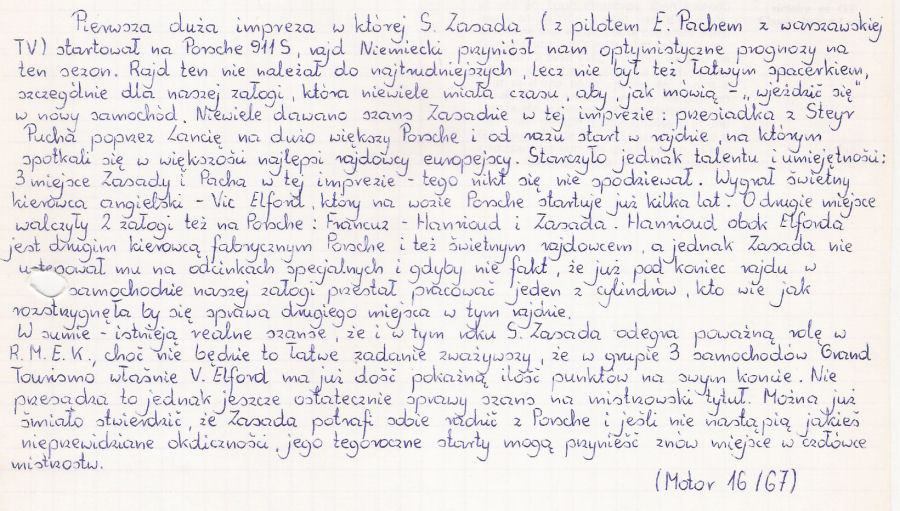 Pierwsza duża impreza w której S. Zasada (z pilotem E. Pachem z warszawskiej
TV) startował na Porsche 911S, rajd Niemiecki przyniósł nam optymistyczne prognozy na
ten sezon. Rajd ten nie należał do najtrudniejszych, lecz nie był też łatwym spacerkiem,
szczególnie dla naszej załogi, która niewiele miała czasu, aby jak mówią - „wjeździć się"
w nowy samochód. Niewiele dawano szans Zasadzie w tej imprezie: przesiadka z Steyr
Pucha poprzez Lancię na dużo większy Porsche i od razu start w rajdzie, na którym
spotkali się w większości najlepsi rajdowcy europejscy. Starczyło jednak talentu i umiejętności:
3 miejsce Zasady i Pacha w tej imprezie - tego nikt się nie spodziewał. Wygrał świetny
kierowca angielski - Vic Elford, który na wozie Porsche startuje już kilka lat. O drugie miejsce
walczyły 2 załogi też na Porsche: Francuz - Hanrioud i Zasada. Hanrioud obok Elforda
jest drugim kierowcą fabrycznym Porsche i też świetnym rajdowcem, a jednak Zasada nie
ustępował mu na odcinkach specjalnych i gdyby nie fakt, że już pod koniec rajdu w
samochodzie naszej załogi przestał pracować jeden z cylindrów, kto wie jak
rozstrzygnęła by się sprawa drugiego miejsca w tym rajdzie.
W sumie - istnieją realne szanse, że i w tym roku S. Zasada odegra poważną rolę w
R.M.E.K., choć nie będzie to łatwe zadanie zważywszy, że w grupie 3 samochodów Grand
Tourismo właśnie V. Elford ma już dość pokaźną ilość punktów na swym koncie. Nie
przesądza to jednak jeszcze ostatecznie sprawy szans na mistrzowski tytuł. Można już
śmiało stwierdzić, że Zasada potrafi sobie radzić z Porsche i jeśli nie nastąpią jakieś
nieprzewidziane okoliczności, jego tegoroczne starty mogą przynieść znów miejsce w czołówce
mistrzostw.
(Motor 16/67)